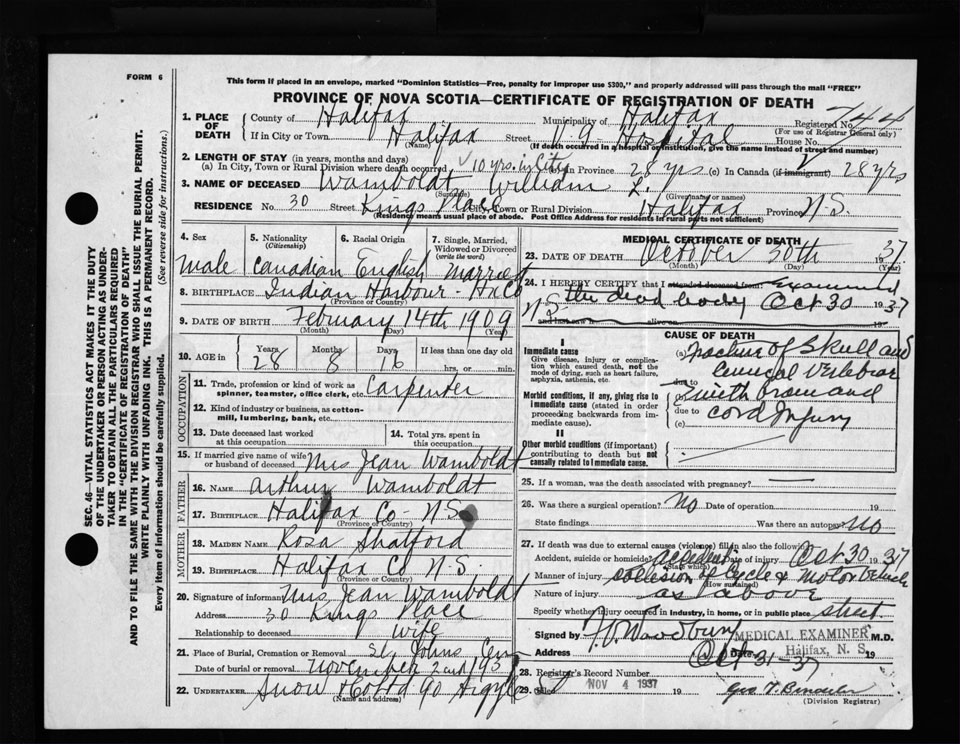 FORM 6
This form if placed in an envelope, marked "Dominion Statistics—Free, penalty for improper use $300," and properly addressed will pass through the mail "FREE"
PROVINCE OF NOVA SCOTIA—CERTIFICATE OF REGISTRATION OF DEATH
1. PLACE OF DEATH County of Halifax Municipality of Halifax Registered No. 744
(For use of Registrar General only)
If in City or Town Halifax Street V. G. Hospital House No.
(Name) (If death occurred in a hospital or institution, give the name instead of street and number)
2. LENGTH OF STAY (in years, months and days)
(a) In City, Town or Rural Division where death occurred 10 yrs. in City (b) in Province 28 yrs (c) In Canada (if immigrant) 28 yrs
3. NAME OF DECEASED Wamboldt William L.
(Surname) (Given name or names)
RESIDENCE No. 30 Street Kings Place City, Town or Rural Division Halifax Province N.S.
(Residency means usual place of abode. Post Office Address for residents in rural parts not sufficient)
4. Sex 5. Nationality (Citizenship) 6. Racial Origin 7. Single, Married, Widowed or Divorced (write the word)
male Canadian English married
8. BIRTHPLACE Indian Harbour - Hx Co N.S.
(Province or Country)
9. DATE OF BIRTH February 14th 1909
(Month) (Day) (Year)
10. AGE in Years Months Days If less than one day old
28 8 16 hrs. or min.
OCCUPATION
11. Trade, profession or kind of work as spinner, teamster, office clerk, etc. Carpenter
12. Kind of industry or business, as cotton-mill, lumbering, bank, etc.
13. Date deceased last worked at this occupation 14. Total yrs. spent in this occupation
15. If married give name of wife or husband of deceased Mrs Jean Wamboldt
FATHER
16. NAME Arthur Wamboldt
17. BIRTHPLACE Halifax Co - N.S.
(Province or Country)
MOTHER
18. MAIDEN NAME Rosa Shatford
19. BIRTHPLACE Halifax Co N.S.
(Province or Country)
20. Signature of informant Mrs Jean Wamboldt
Address 30 Kings Place
Relationship to deceased wife
21. Place of Burial, Cremation or Removal St. Johns Cem
Date of burial or removal November 2nd 193
22. UNDERTAKER Snow & Co Ltd 90 Argyle
(Name and address)
MEDICAL CERTIFICATE OF DEATH
23. DATE OF DEATH October 30th 1937
(Month) (Day) (Year)
24. I HEREBY CERTIFY that I attended deceased from Examined
the dead body Oct 30 1937
and last saw h alive on
CAUSE OF DEATH
I
Immediate cause
Give disease, injury or complication which caused death, not the mode of dying, such as heart failure, asphyxia, asthenia, etc.
(a) Fracture of Skull and
Cervical Vertebrae
due to
Morbid conditions, if any, giving rise to immediate cause (stated in order proceeding backwards from immediate cause).
(b) with brain and
due to cord Injury
(c)
II
Other morbid conditions (if important) contributing to death but not causally related to immediate cause.
25. If a woman, was the death associated with pregnancy?
26. Was there a surgical operation? No Date of operation 19
State findings Was there an autopsy? No
27. If death was due to external causes (violence) fill in also the following
Accident, suicide or homicide? accident Date of injury Oct 30 1937
(State which)
Manner of injury collision of cycle & motor vehicle
(How sustained)
Nature of injury as above
Specify whether injury occurred in industry, in home, or in public place street
Signed by MEDICAL EXAMINER M.D.
Address Halifax, N. S. Date Oct 31-37 19
28. Registrar's Record Number
29. Filed NOV 4 1937 19
(Division Registrar)
SEC. 46—VITAL STATISTICS ACT MAKES IT THE DUTY
OF THE UNDERTAKER OR PERSON ACTING AS UNDER-
TAKER TO OBTAIN ALL THE PARTICULARS REQUIRED
IN THE "CERTIFICATE OF REGISTRATION OF DEATH"
AND TO FILE THE SAME WITH THE DIVISION REGISTRAR WHO SHALL ISSUE THE BURIAL PERMIT.
WRITE PLAINLY WITH UNFADING INK. THIS IS A PERMANENT RECORD.
Every item of information should be carefully supplied. (See reverse side for instructions.)